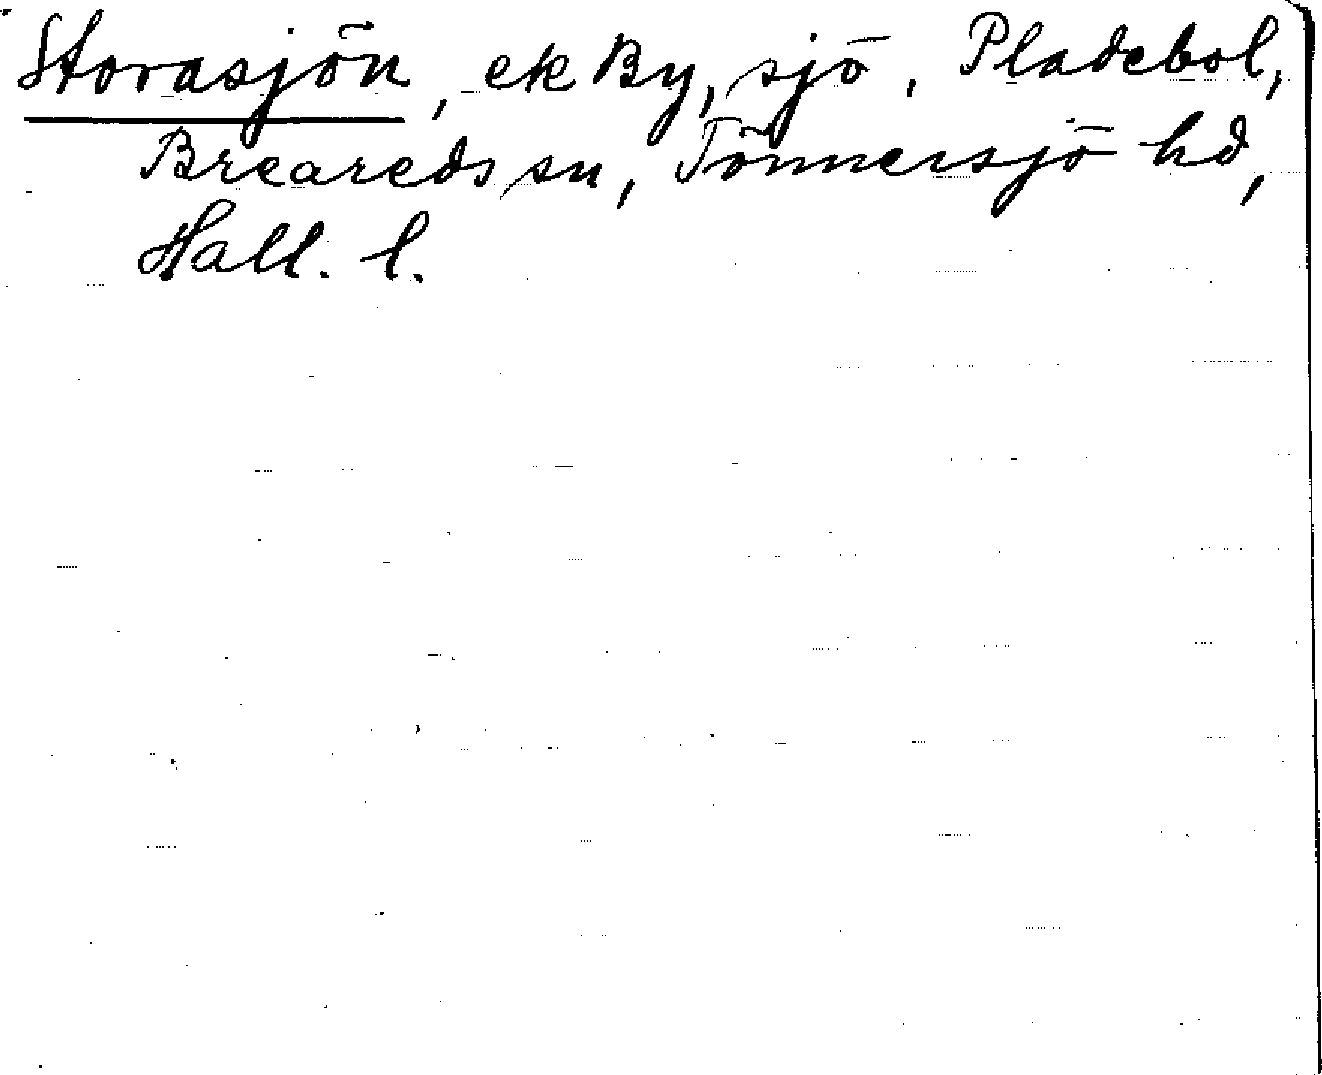 Storasjön, ek By, sjö, Pladebol,
Breareds sn, Tönnersjö hd,
Hall. l.